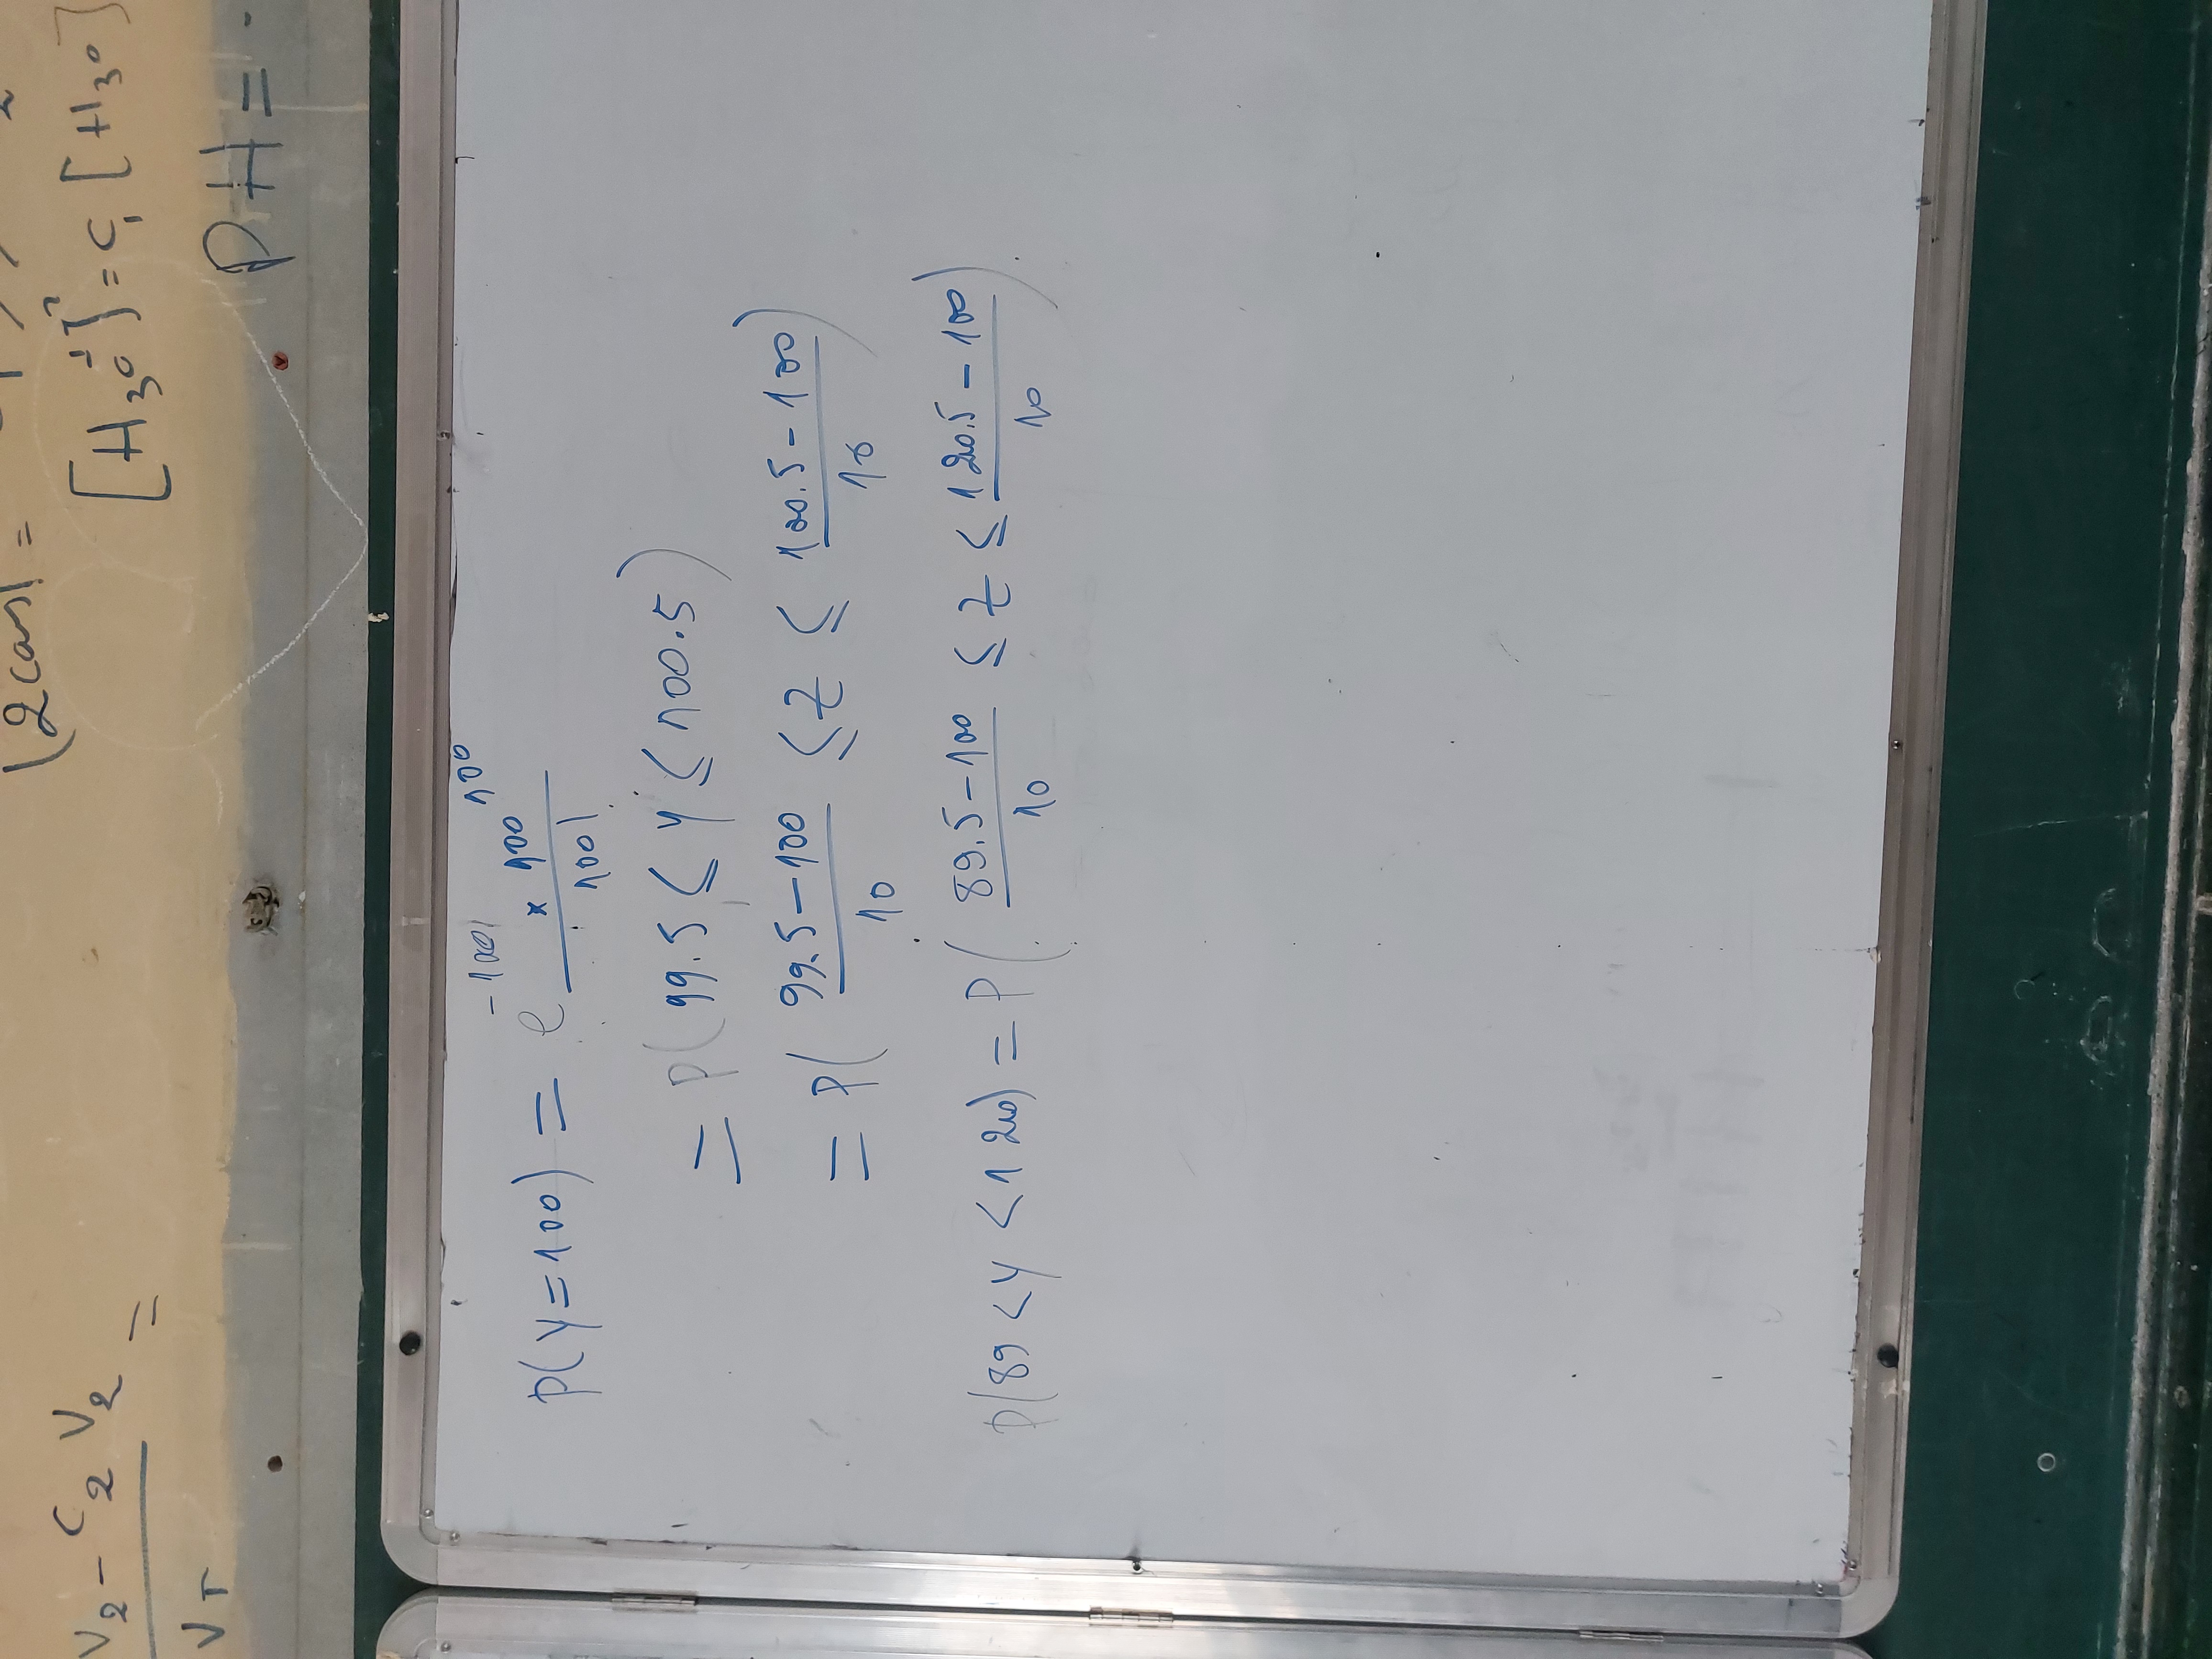 V₂ - C₂ V₂ =
V_T
(2 cas) =
[H₃O⁺]² = C₁ [H₃O
PH = -
P(Y=100) = e^{-100} × 100^{100} / 100!
= P(99.5 ≤ Y ≤ 100.5)
= P( (99.5-100)/10 ≤ Z ≤ (100.5-100)/10 )
P(89 < Y < 120) = P( (89.5-100)/10 ≤ Z ≤ (120.5-100)/10 ).